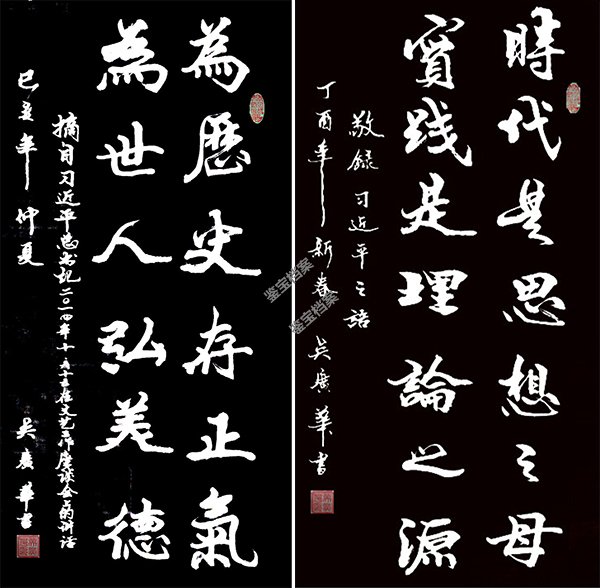 時代是思想之母
實践是理論之源
敬録习近平之語
丁酉年新春 吴廣華書
為歷史存正氣
為世人弘美德
摘自习近平总书记二〇一四年十月十五日在文艺工作座谈会上的讲话
己亥年仲夏 吴廣華书
鉴宝档案
鉴宝档案